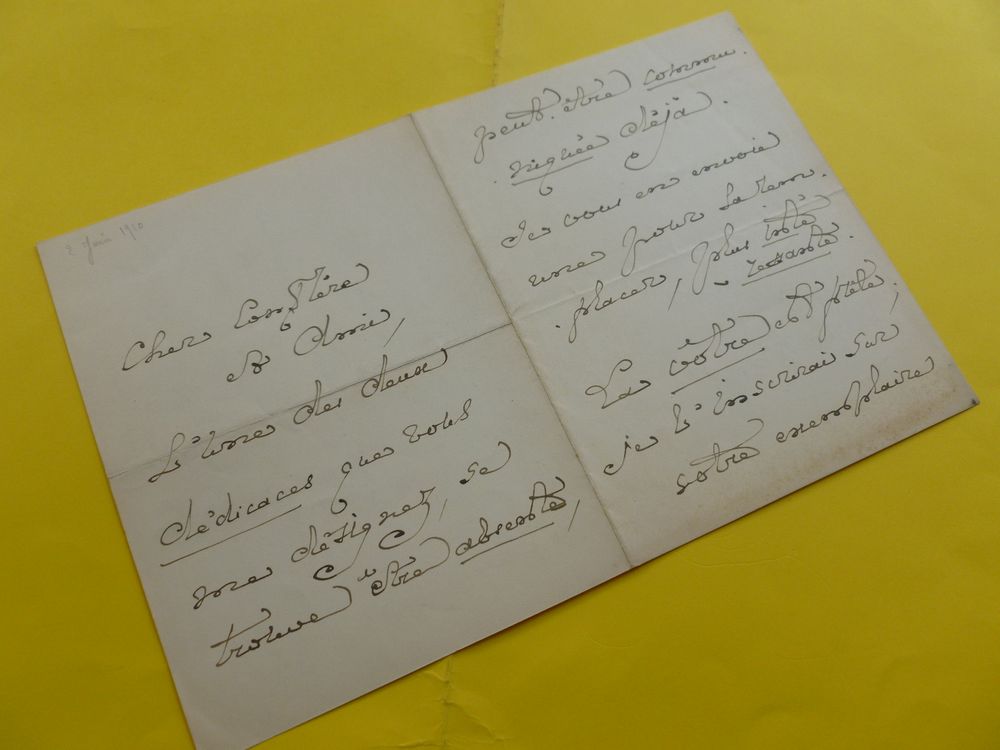 2 Juin 1910
Cher Confrère
et Ami,
L'une des deux
dédicaces que vous
me désignez, se
trouve être absente,
peut-être commu-
niquée déjà.
Je vous en envoie
une pour la rem-
placer, plus inté-
ressante.
La vôtre est prête,
je l'inscrirai sur
votre exemplaire